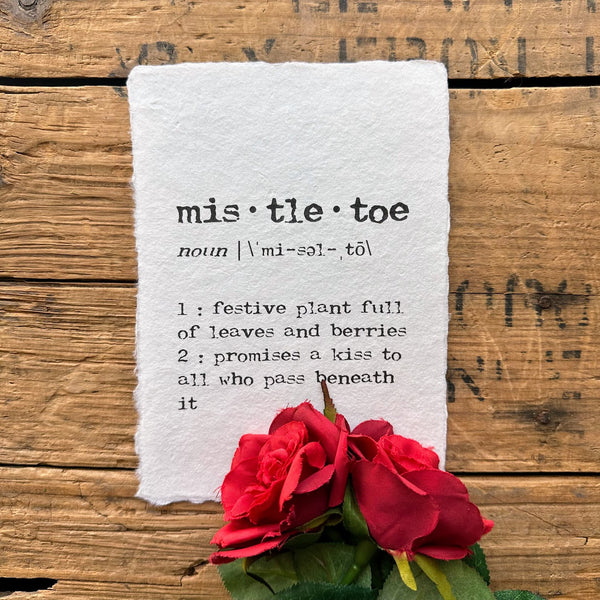 mis·tle·toe
noun |\ˈmi-səl-ˌtō\
1 : festive plant full
of leaves and berries
2 : promises a kiss to
all who pass beneath
it